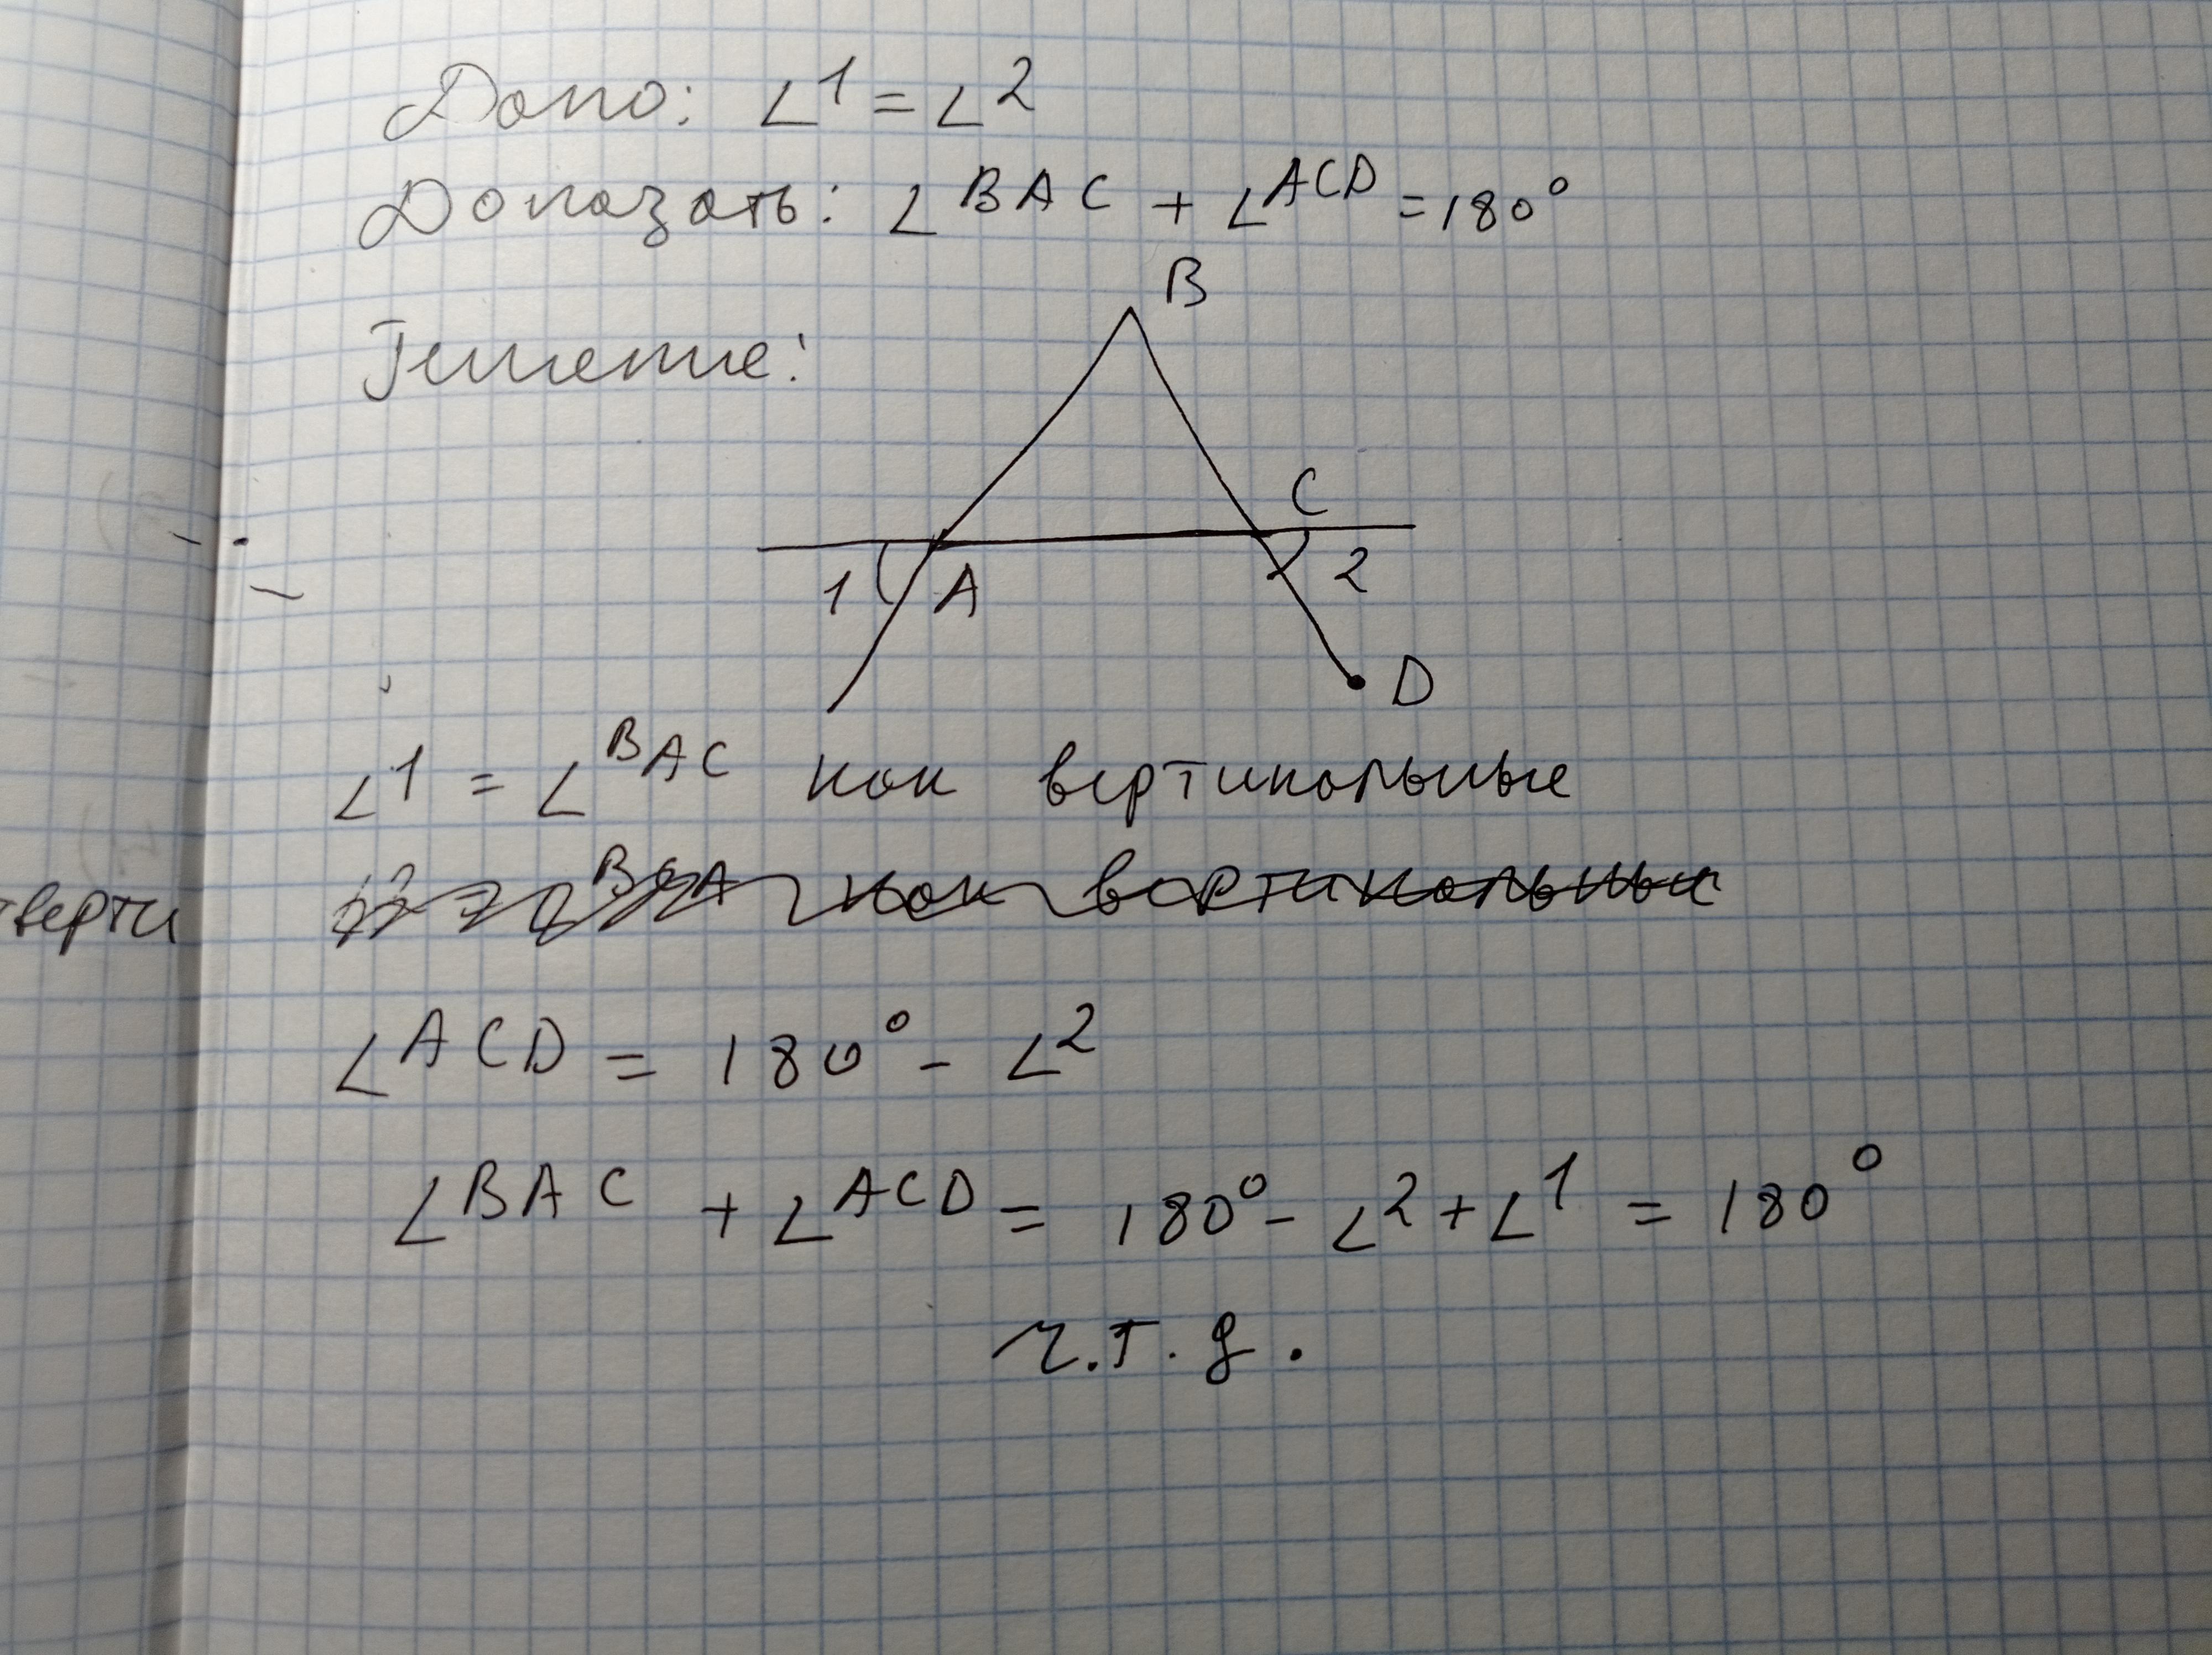 Дано: ∠1 = ∠2
Доказать: ∠BAC + ∠ACD = 180°
Решение:
B
C
1 A 2
D
∠1 = ∠BAC как вертикальные
верти
∠2 = ∠BCA как вертикальные
∠ACD = 180° - ∠2
∠BAC + ∠ACD = 180° - ∠2 + ∠1 = 180°
ч.т.д.